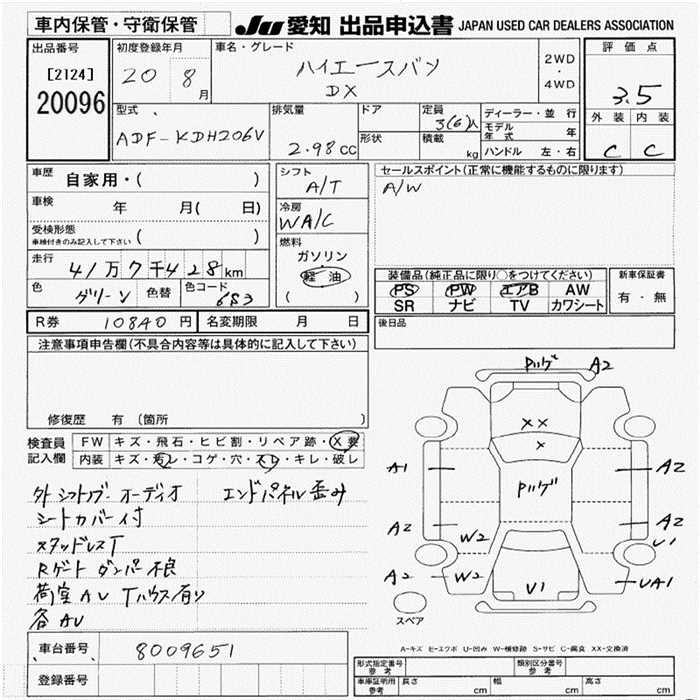 車内保管・守衛保管
JU 愛知 出品申込書 JAPAN USED CAR DEALERS ASSOCIATION
出品番号
[2124]
20096
初度登録年月
20 8月
車名・グレード
ハイエースバン
DX
2WD
・
4WD
評価点
3.5
外装 内装
C C
型式
ADF-KDH206V
排気量
2.98cc
ドア
形状
定員
3(6)人
積載
kg
ディーラー・並行
モデル年式 年
ハンドル 左・右
車歴 自家用・( )
車検 年 月( 日)
受検形態
車検付きのみ記入して下さい ( )
走行 41万7千428km
色 グリーン 色替 色コード 6S3
シフト
A/T
冷房
WA/C
燃料
ガソリン
軽油
( )
セールスポイント(正常に機能するものに限ります)
A/W
装備品(純正品に限り○をつけてください)
PS PW エアB AW
SR ナビ TV カワシート
新車保証書
有・無
後日品
R券 10840円 名変期限 月 日
注意事項申告欄(不具合内容等は具体的に記入して下さい)
修復歴 有 〔箇所 〕
検査員記入欄
FW キズ・飛石・ヒビ割・リペア跡・X要
内装 キズ・汚レ・コゲ・穴・スレ・キレ・破レ
外シフトノブ オーディオ エンドパネル歪み
シートカバー付
スタッドレスT
Rゲート ダンパー不良
荷室AU Tハウス有り
各AU
Pハゲ A2
XX
X
A1 A2
Pハゲ
A2 A2
W2 U1
A2 W2
U1 UA1
スペア
A-キズ E-エクボ U-凹み W-補修跡 S-サビ C-腐食 XX-交換済
車台番号 8009651
登録番号
形式指定番号
参考
類別区分番号
参考
車庫証明用
参考
長さ cm 幅 cm 高さ cm